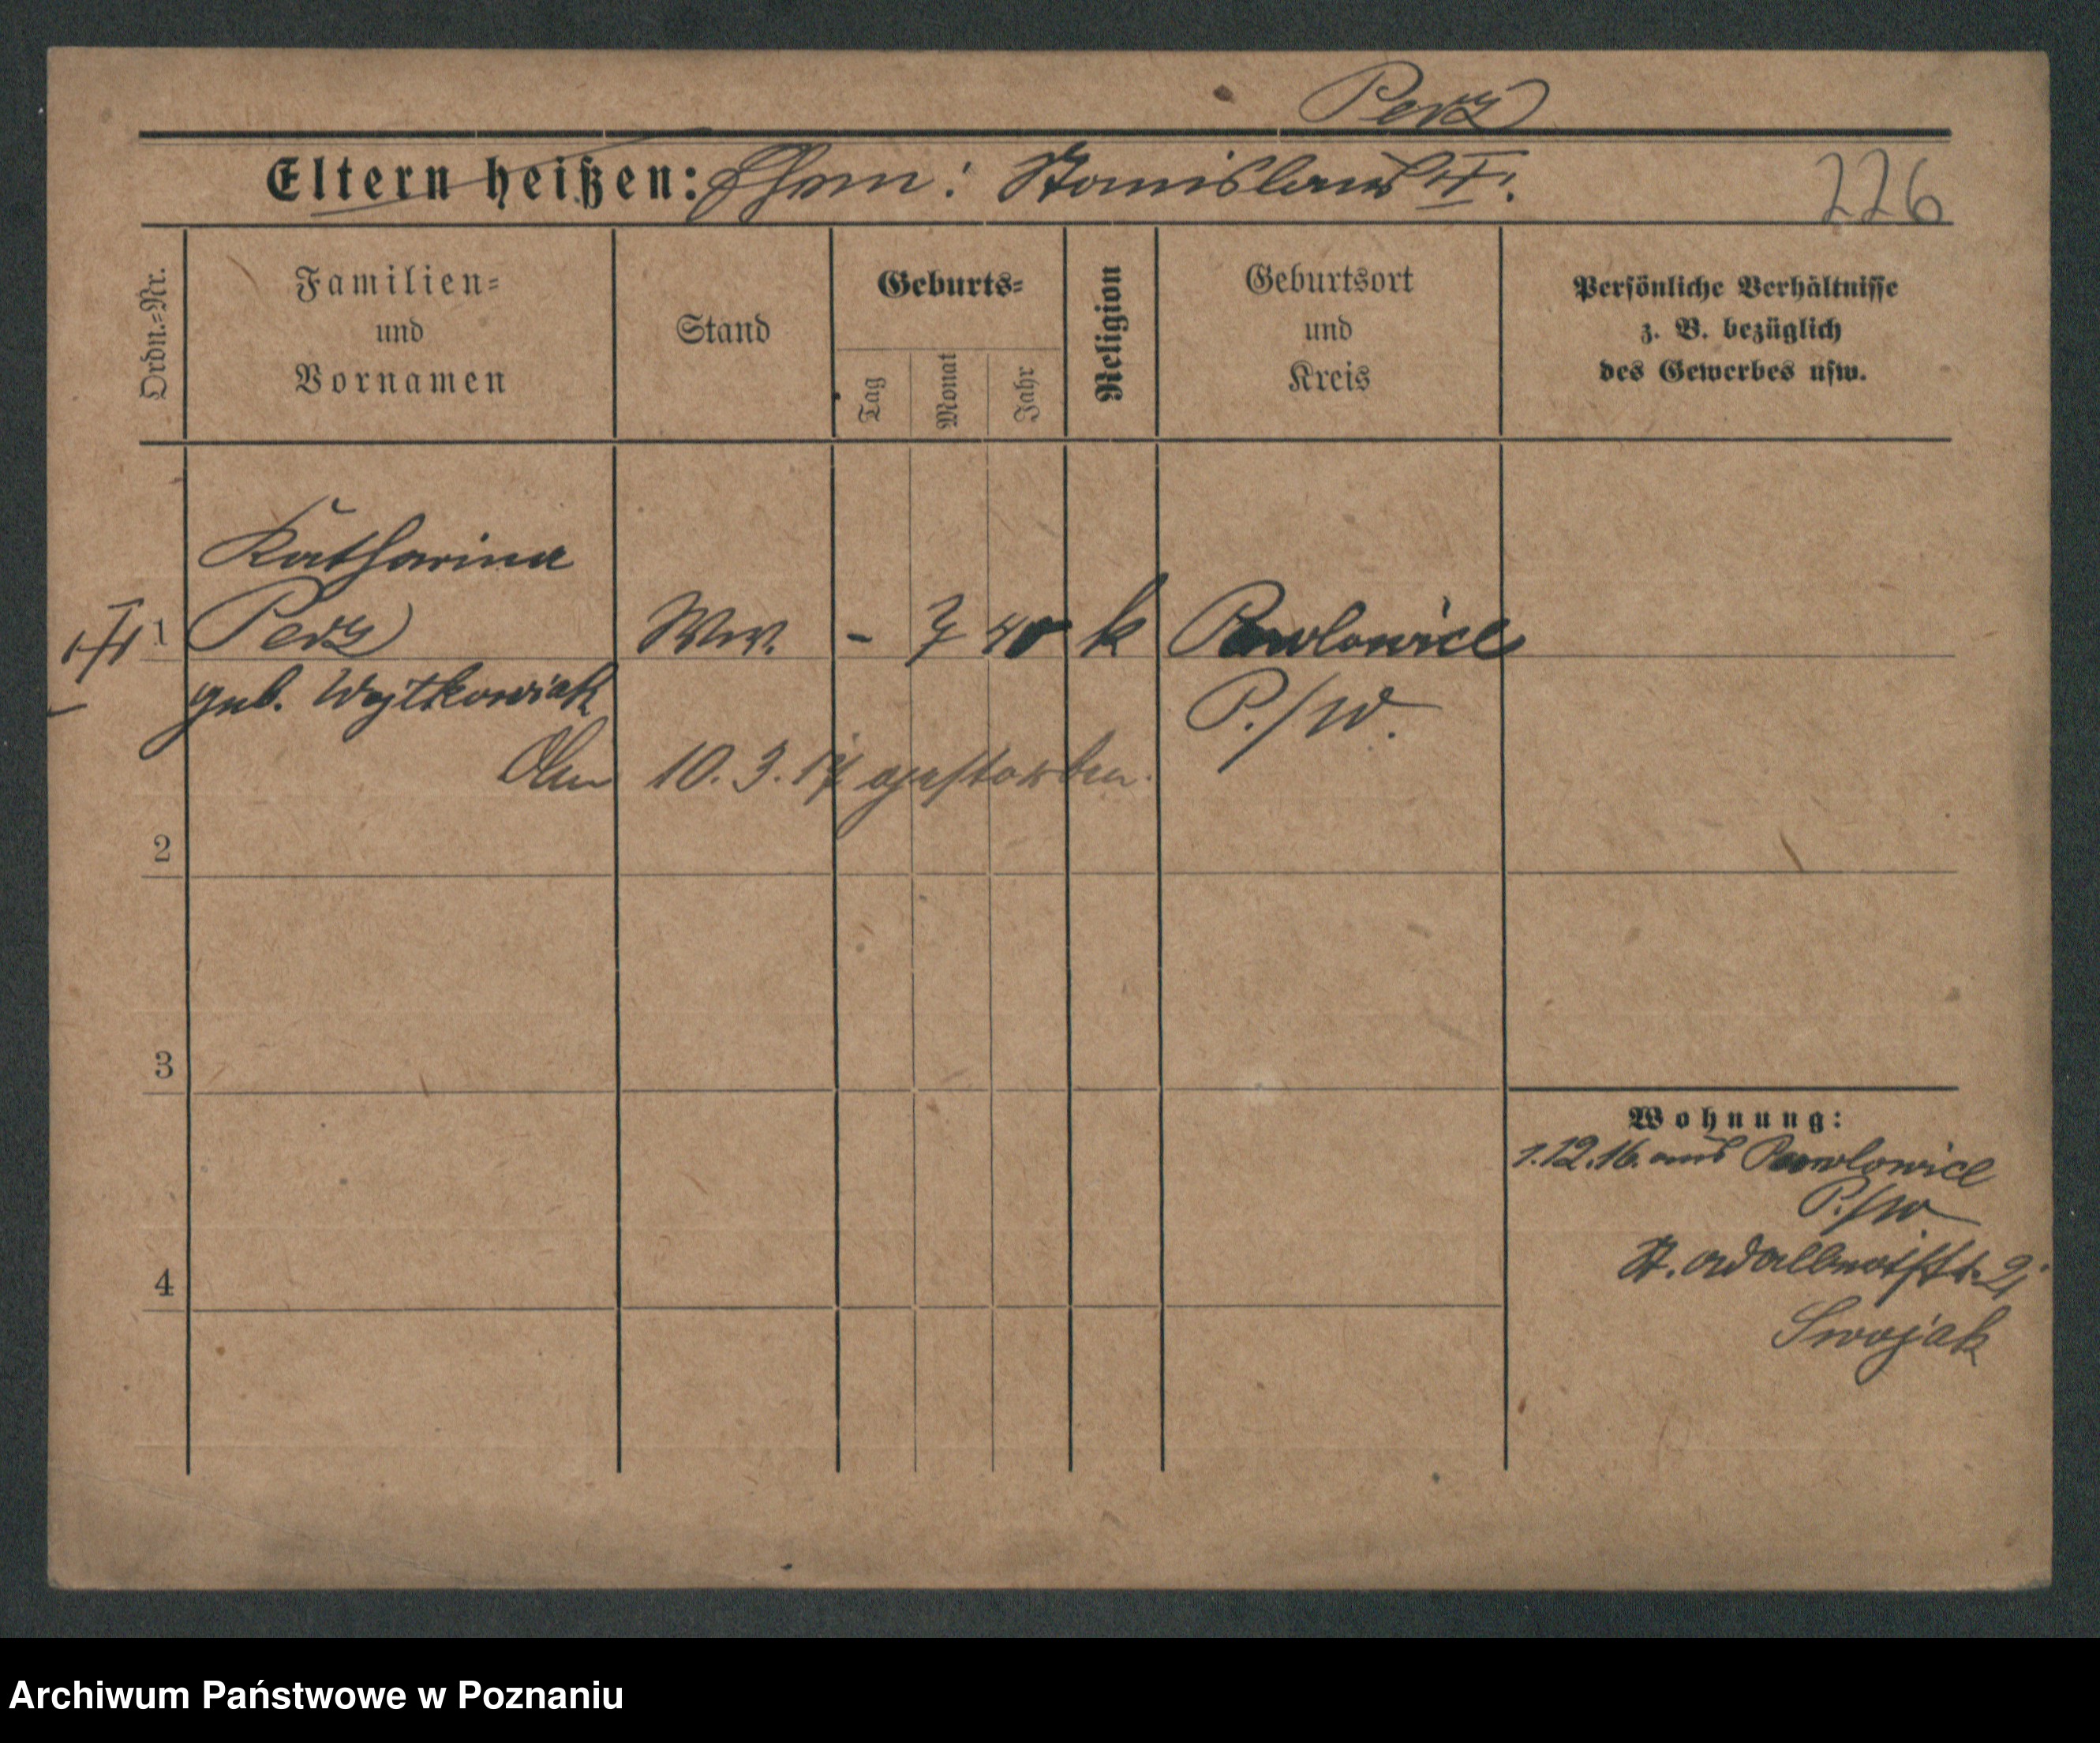 Perz
Eltern heißen: Ehem: Stanislaus
226
Ordn.=Nr.
Familien=
und
Vornamen
Stand
Geburts=
Tag
Monat
Jahr
Religion
Geburtsort
und
Kreis
Persönliche Verhältnisse
z. B. bezüglich
des Gewerbes usw.
Katharina
1 Perz Ww. - 7 40 k Pawlowice
geb. Wojtkowiak P./W.
Am 10. 3. 17 gestorben.
2
3
4
Wohnung:
1.12.16. aus Pawlowice
P./W.
St. Adalbertstr. 2
Swojak
Archiwum Państwowe w Poznaniu